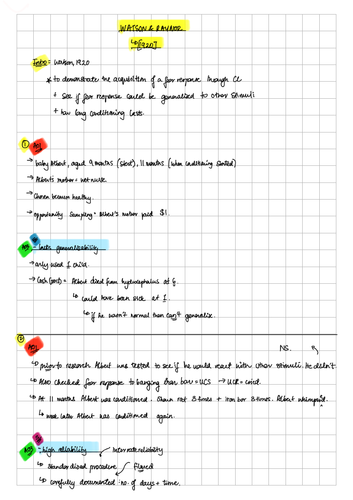 WATSON & RAYNOR
↳ [1920]
Intro = Watson 1920
* to demonstrate the acquisition of a fear response through CC
+ see if fear response could be generalised to other stimuli
+ how long conditioning lasts.
① AO1
→ baby Albert, aged 9 months (start), 11 months (when conditioning started)
→ Albert's mother = wet nurse
→ Chosen because healthy.
→ opportunity sampling - Albert's mother paid $1.
AO3 = lacks generalisability
→ only used 1 child.
→ Albert died from hydrocephalus at 6.
↳ could have been sick at 1.
↳ if he wasn't normal then can't generalise.
② AO1 NS.
↳ prior to research Albert was tested to see if he would react with other stimuli. He didn't.
↳ Also checked fear response to banging iron bar = UCS → UCR = cried.
↳ At 11 months Albert was conditioned. Shown rat 3 times + iron bar 3 times. Albert whimpered.
↳ week later Albert was conditioned again.
AO3 = high reliability inter-rater reliability
↳ Standardised procedure filmed
↳ carefully documented no. of days + time.